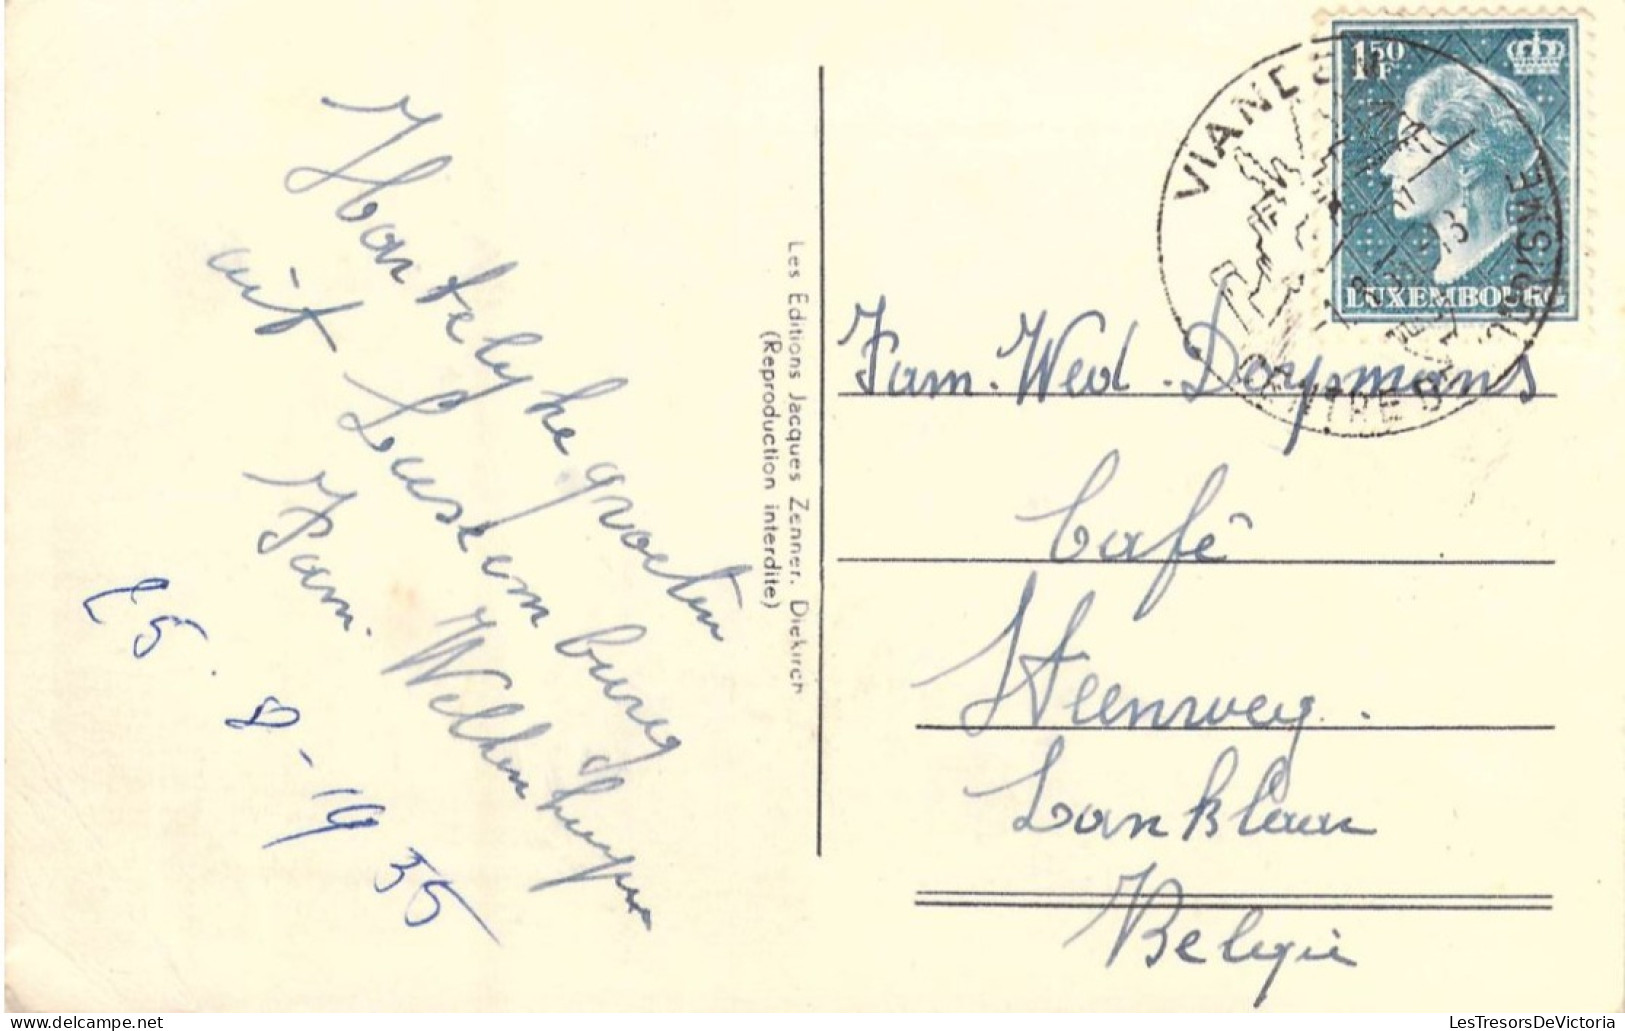 Hartelyke groeten
uit Luxemburg
Fam.
25.8-1955
Les Editions Jacques Zenner, Diekirch
(Reproduction interdite)
1.50 F
LUXEMBOURG
VIANDEN
CENTRE DE
Fam. Wed.
Café
Steenweg.
Lanklaar
Belgie
LesTresorsDeVictoria